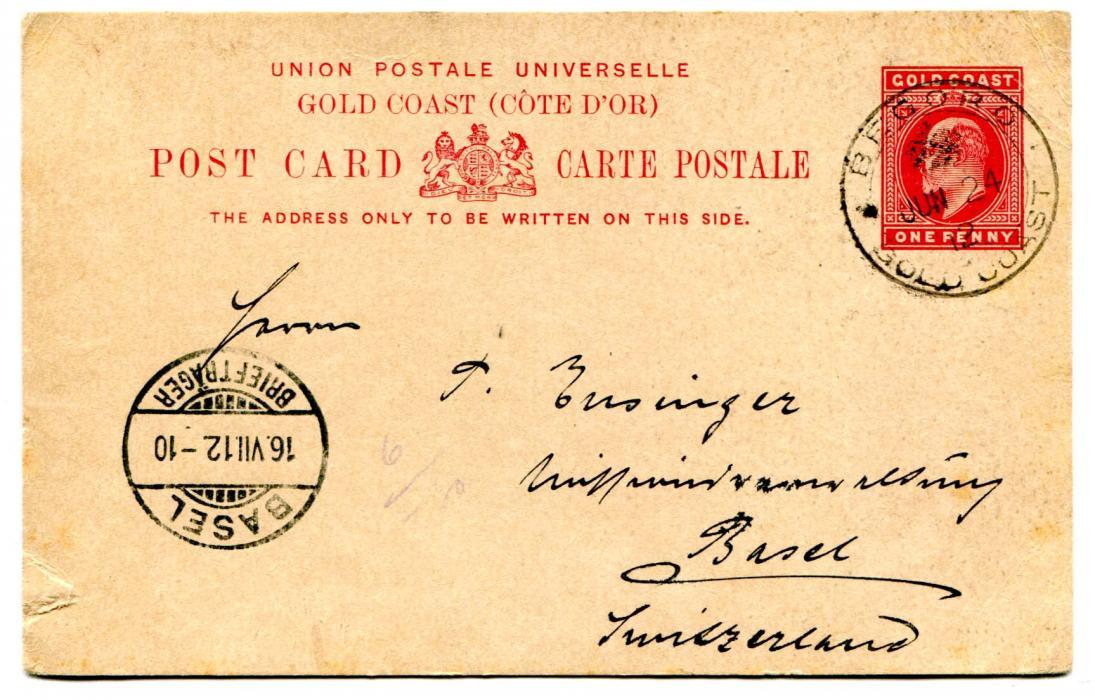 UNION POSTALE UNIVERSELLE
GOLD COAST (CÔTE D'OR)
POST CARD CARTE POSTALE
THE ADDRESS ONLY TO BE WRITTEN ON THIS SIDE.
GOLD COAST
ONE PENNY
BEGORO
JUN 24
12
GOLD COAST
Herrn
P. Ensinger
Basel
Switzerland
BASEL
16.VII.12.-10
BRIEFTRÄGER
6